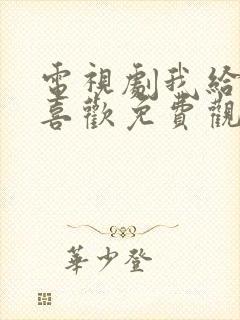 電視劇我給
喜歡免費觀
華少登